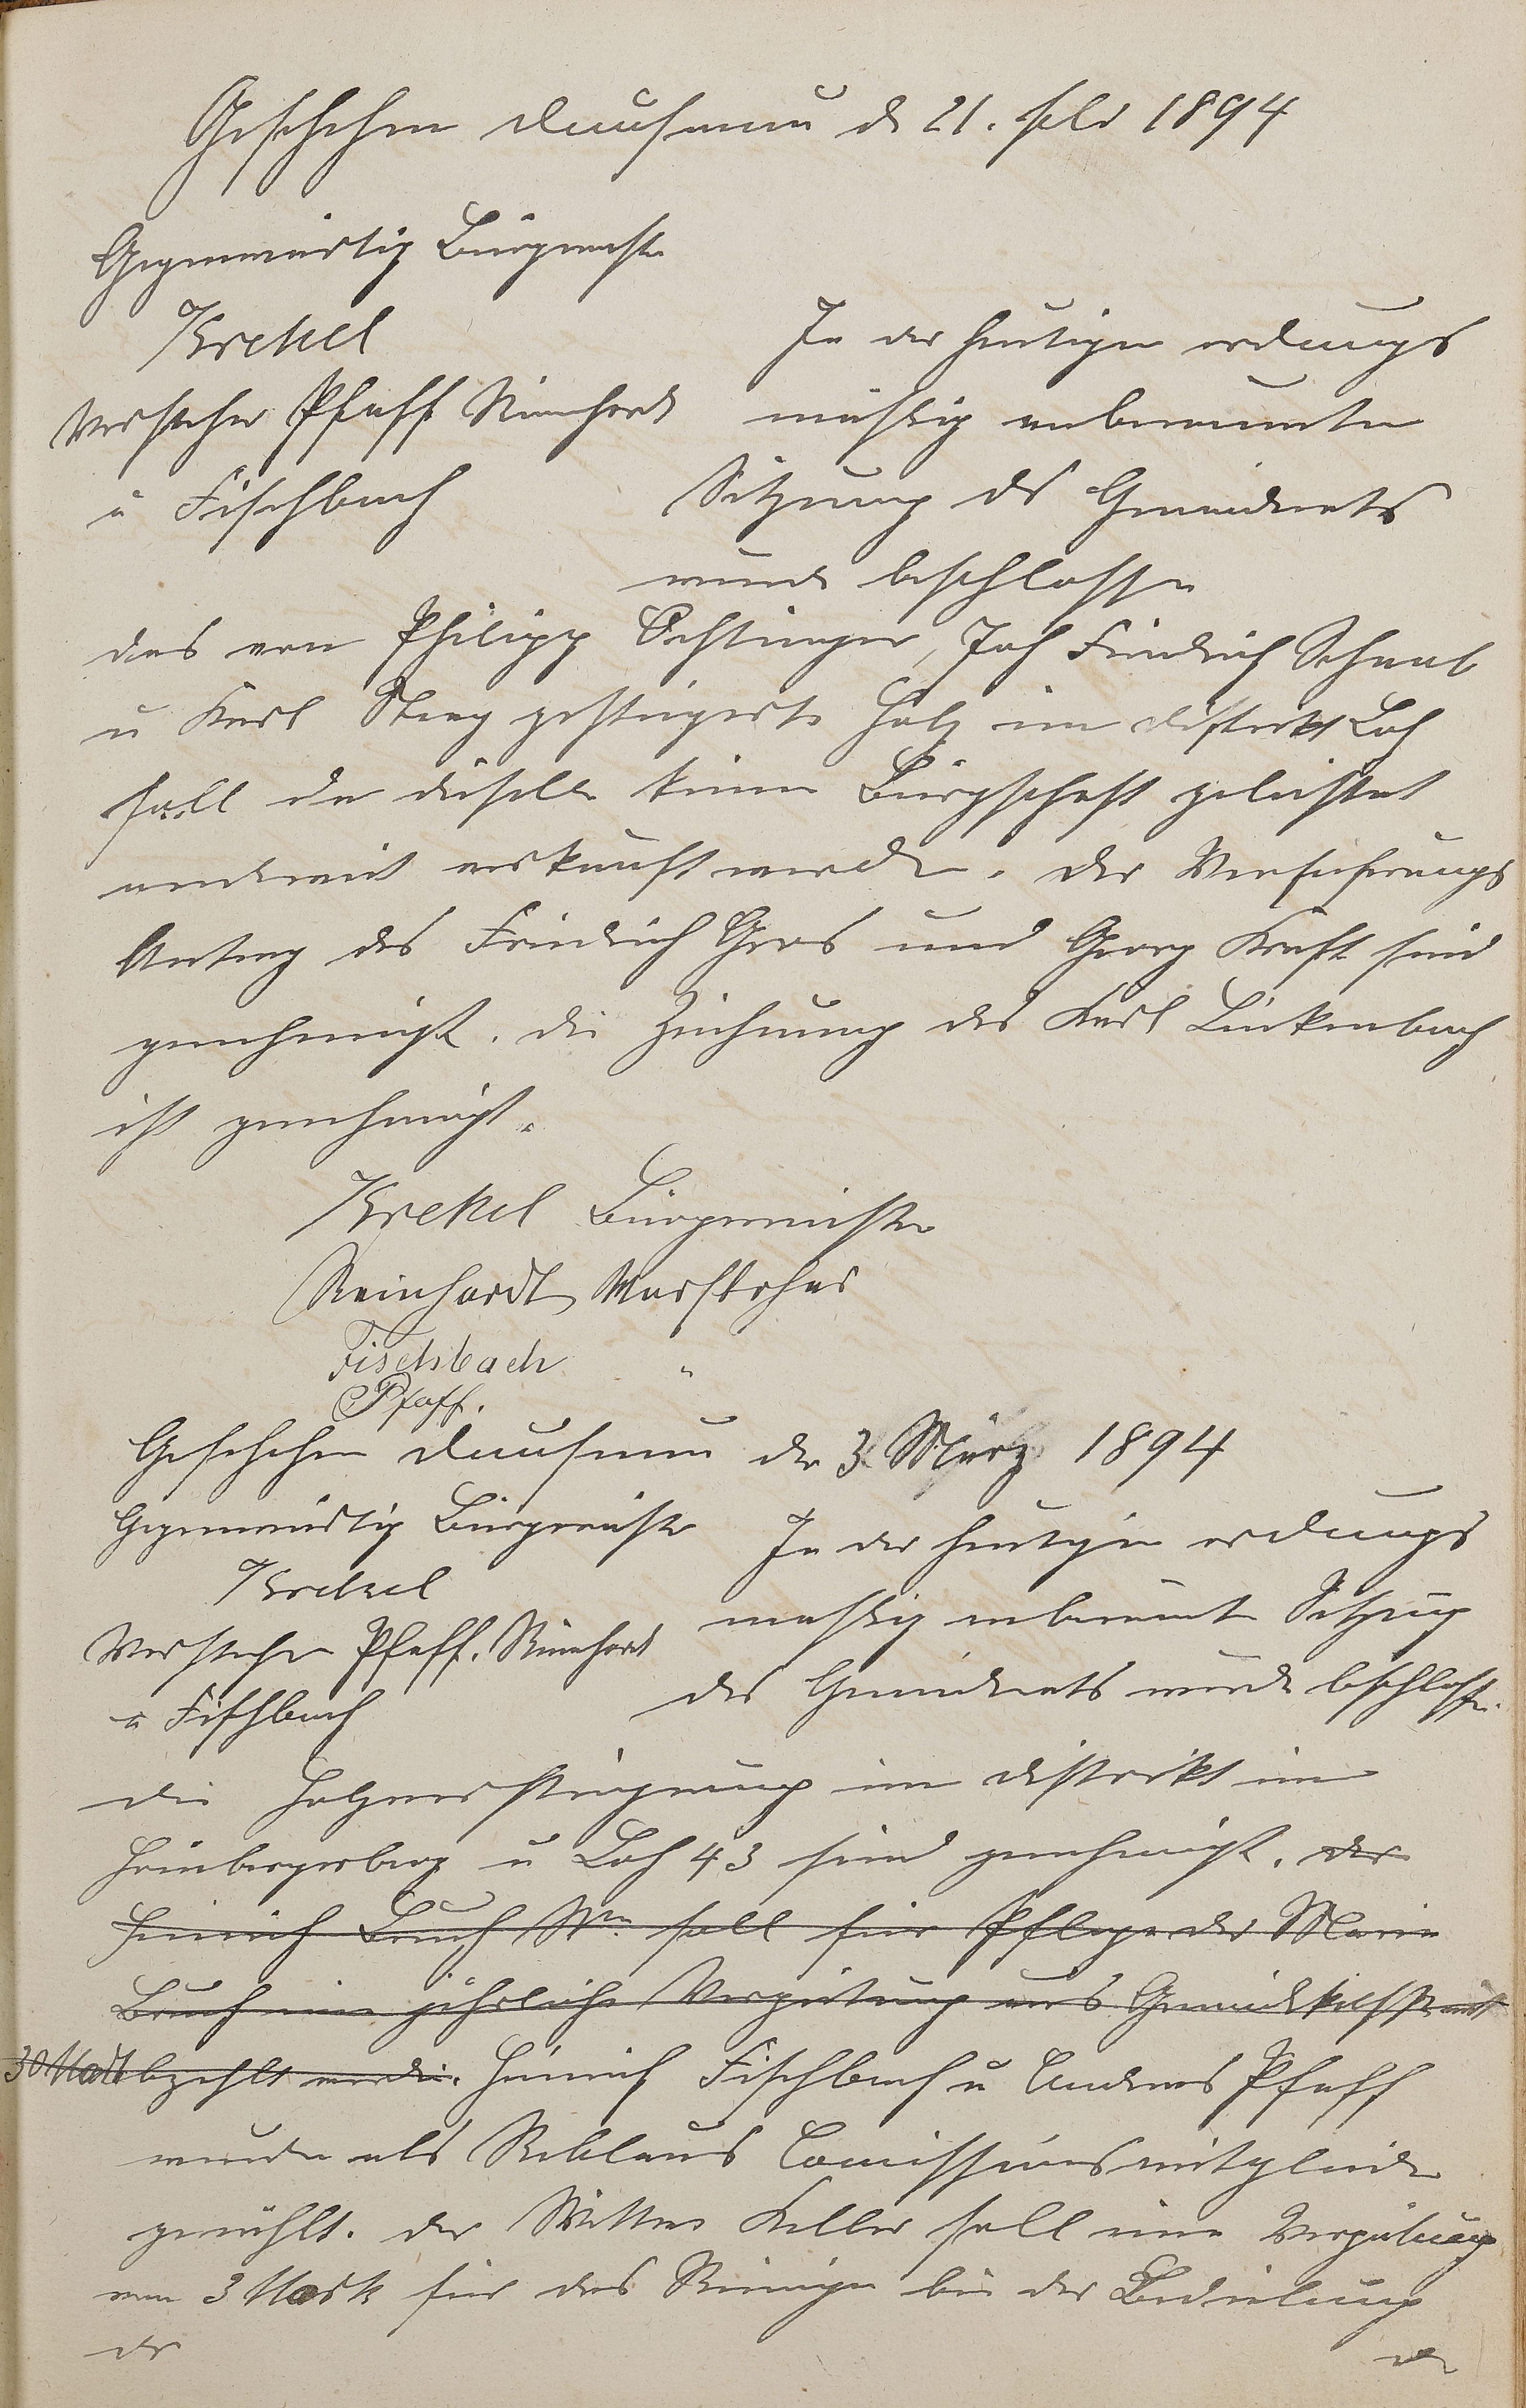 Geschehen Dausenau d 21. Feb 1894
Gegenwärtig Bürgermster
Krekel
Vorsteher Pfaff Reinhardt
u Fischbach
In der heutigen ordnungs
mäßig anberaumten
Sitzung ds Gemeinderats
wurde beschlossen
das von Philipp Joh Friedrich Schwab
u Karl gesteigerte Holz im Distrikt Loh
soll da dieselbe keine Bürgschaft geleistet
anderweit verkauft werden. Der Versicherungs
Antrag des Friedrich Gros und Georg Kraft sind
genehmigt. die Zeichnung des Karl Linkenbach
ist genehmigt.
Krekel Bürgermeister
Reinhardt Vorsteher
Fischbach "
Pfaff.
Geschehen Dausenau den 3 März 1894
Gegenwärtig Bürgermeister
Krekel
Vorsteher Pfaff. Reinhardt
u Fischbach
In der heutigen ordnungs
mäßig anberaumte Sitzung
des Gemeinderats wurde beschlossen.
die Holzversteigerung im Distrikt im
Hömbergerberg u Loh 43 sind genehmigt. der
Heinrich Bruch Wwe soll für Pflege der Marie
Bruch eine jährliche Vergütung aus Gemeindekasse mit
30 Mark bezahlt werden. Heinrich Fischbach u Andreas Pfaff
wurden als Reblaus Comissionsmitglieder
gewählt. der Wittwe Keller soll eine Vergütung
von 3 Mark für das Reinigen bei der
der